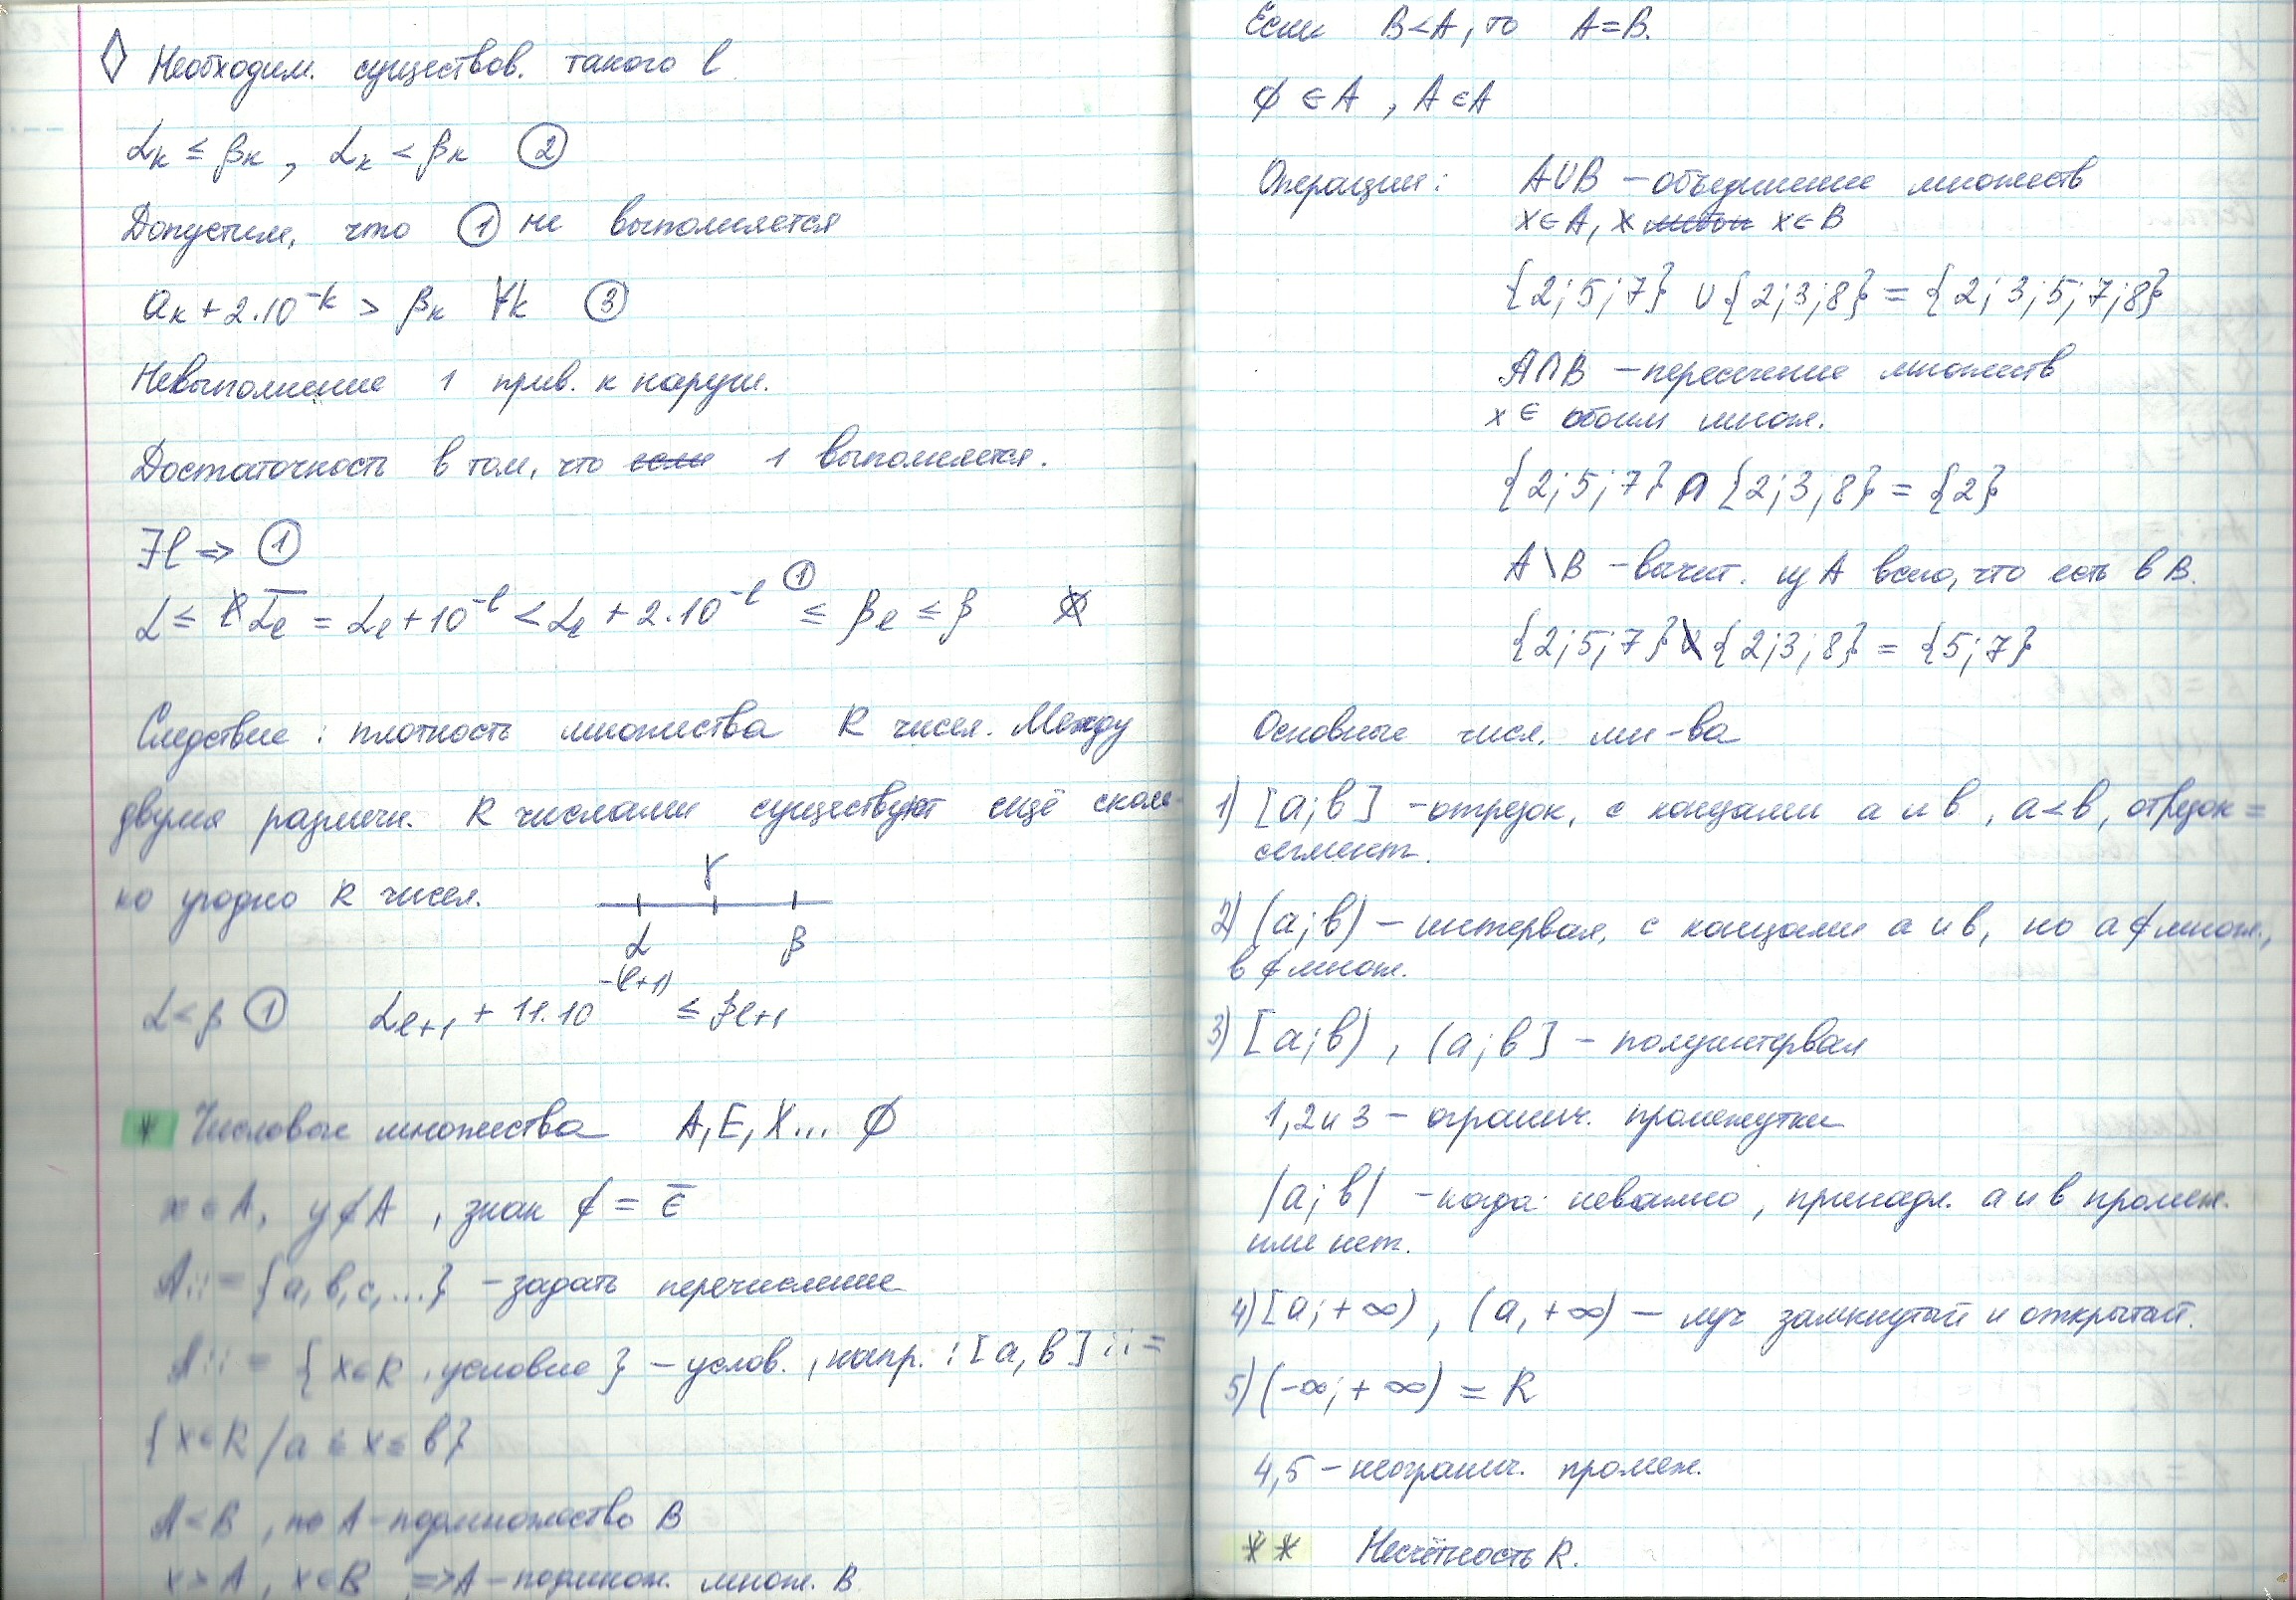 ◊ Необходим. существов. такого l
αₖ ≤ βₖ , αₖ < βₖ ②
Допустим, что ① не выполняется
aₖ + 2·10⁻ᵏ > βₖ ∀k ③
Невыполнение 1 прив. к наруш.
Достаточность в том, что если 1 выполняется.
∃l ⇒ ①
α ≤ α̅ₗ = αₗ + 10⁻ˡ < αₗ + 2·10⁻ˡ ≤ ① βₗ ≤ β
Следствие : плотность множества R чисел. Между
двумя различн. R числами существует ещё сколь-
ко угодно R чисел.
γ
α β
α < β ① αₗ₊₁ + 11·10⁻⁽ˡ⁺¹⁾ ≤ βₗ₊₁
* Числовые множества A, E, X... ∅
x ∈ A, y ∉ A , знак ∉ = ∈̅
A ::= {a, b, c, ...} – задать перечисление
A ::= {x ∈ R , условие } – услов. , напр. : [a, b] ::=
{x ∈ R / a ≤ x ≤ b}
A < B , то A – подмножество B
x > A , x ∈ B , => A – подмнож. множ. B
Если B < A , то A = B.
∅ ∈ A , A ∈ A
Операции : A∪B – объединение множеств
x ∈ A, x либо x ∈ B
{2; 5; 7} ∪ {2; 3; 8} = {2; 3; 5; 7; 8}
A∩B – пересечение множеств
x ∈ обоим множ.
{2; 5; 7} ∩ {2; 3; 8} = {2}
A \ B – вычит. из A всего, что есть в B.
{2; 5; 7} \ {2; 3; 8} = {5; 7}
Основные числ. мн-ва
1) [a; b] – отрезок, с концами a и b , a < b , отрезок =
сегмент.
2) (a; b) – интервал, с концами a и b, но a ∉ множ.,
b ∉ множ.
3) [a; b) , (a; b] – полуинтервал
1, 2 и 3 – огранич. промежутки
|a; b| – когда неважно , принадл. a и b промеж.
или нет.
4) [a; +∞) , (a, +∞) – луч замкнутый и открытый.
5) (-∞; +∞) = R
4, 5 – неогранич. промеж.
** Несчётность R.